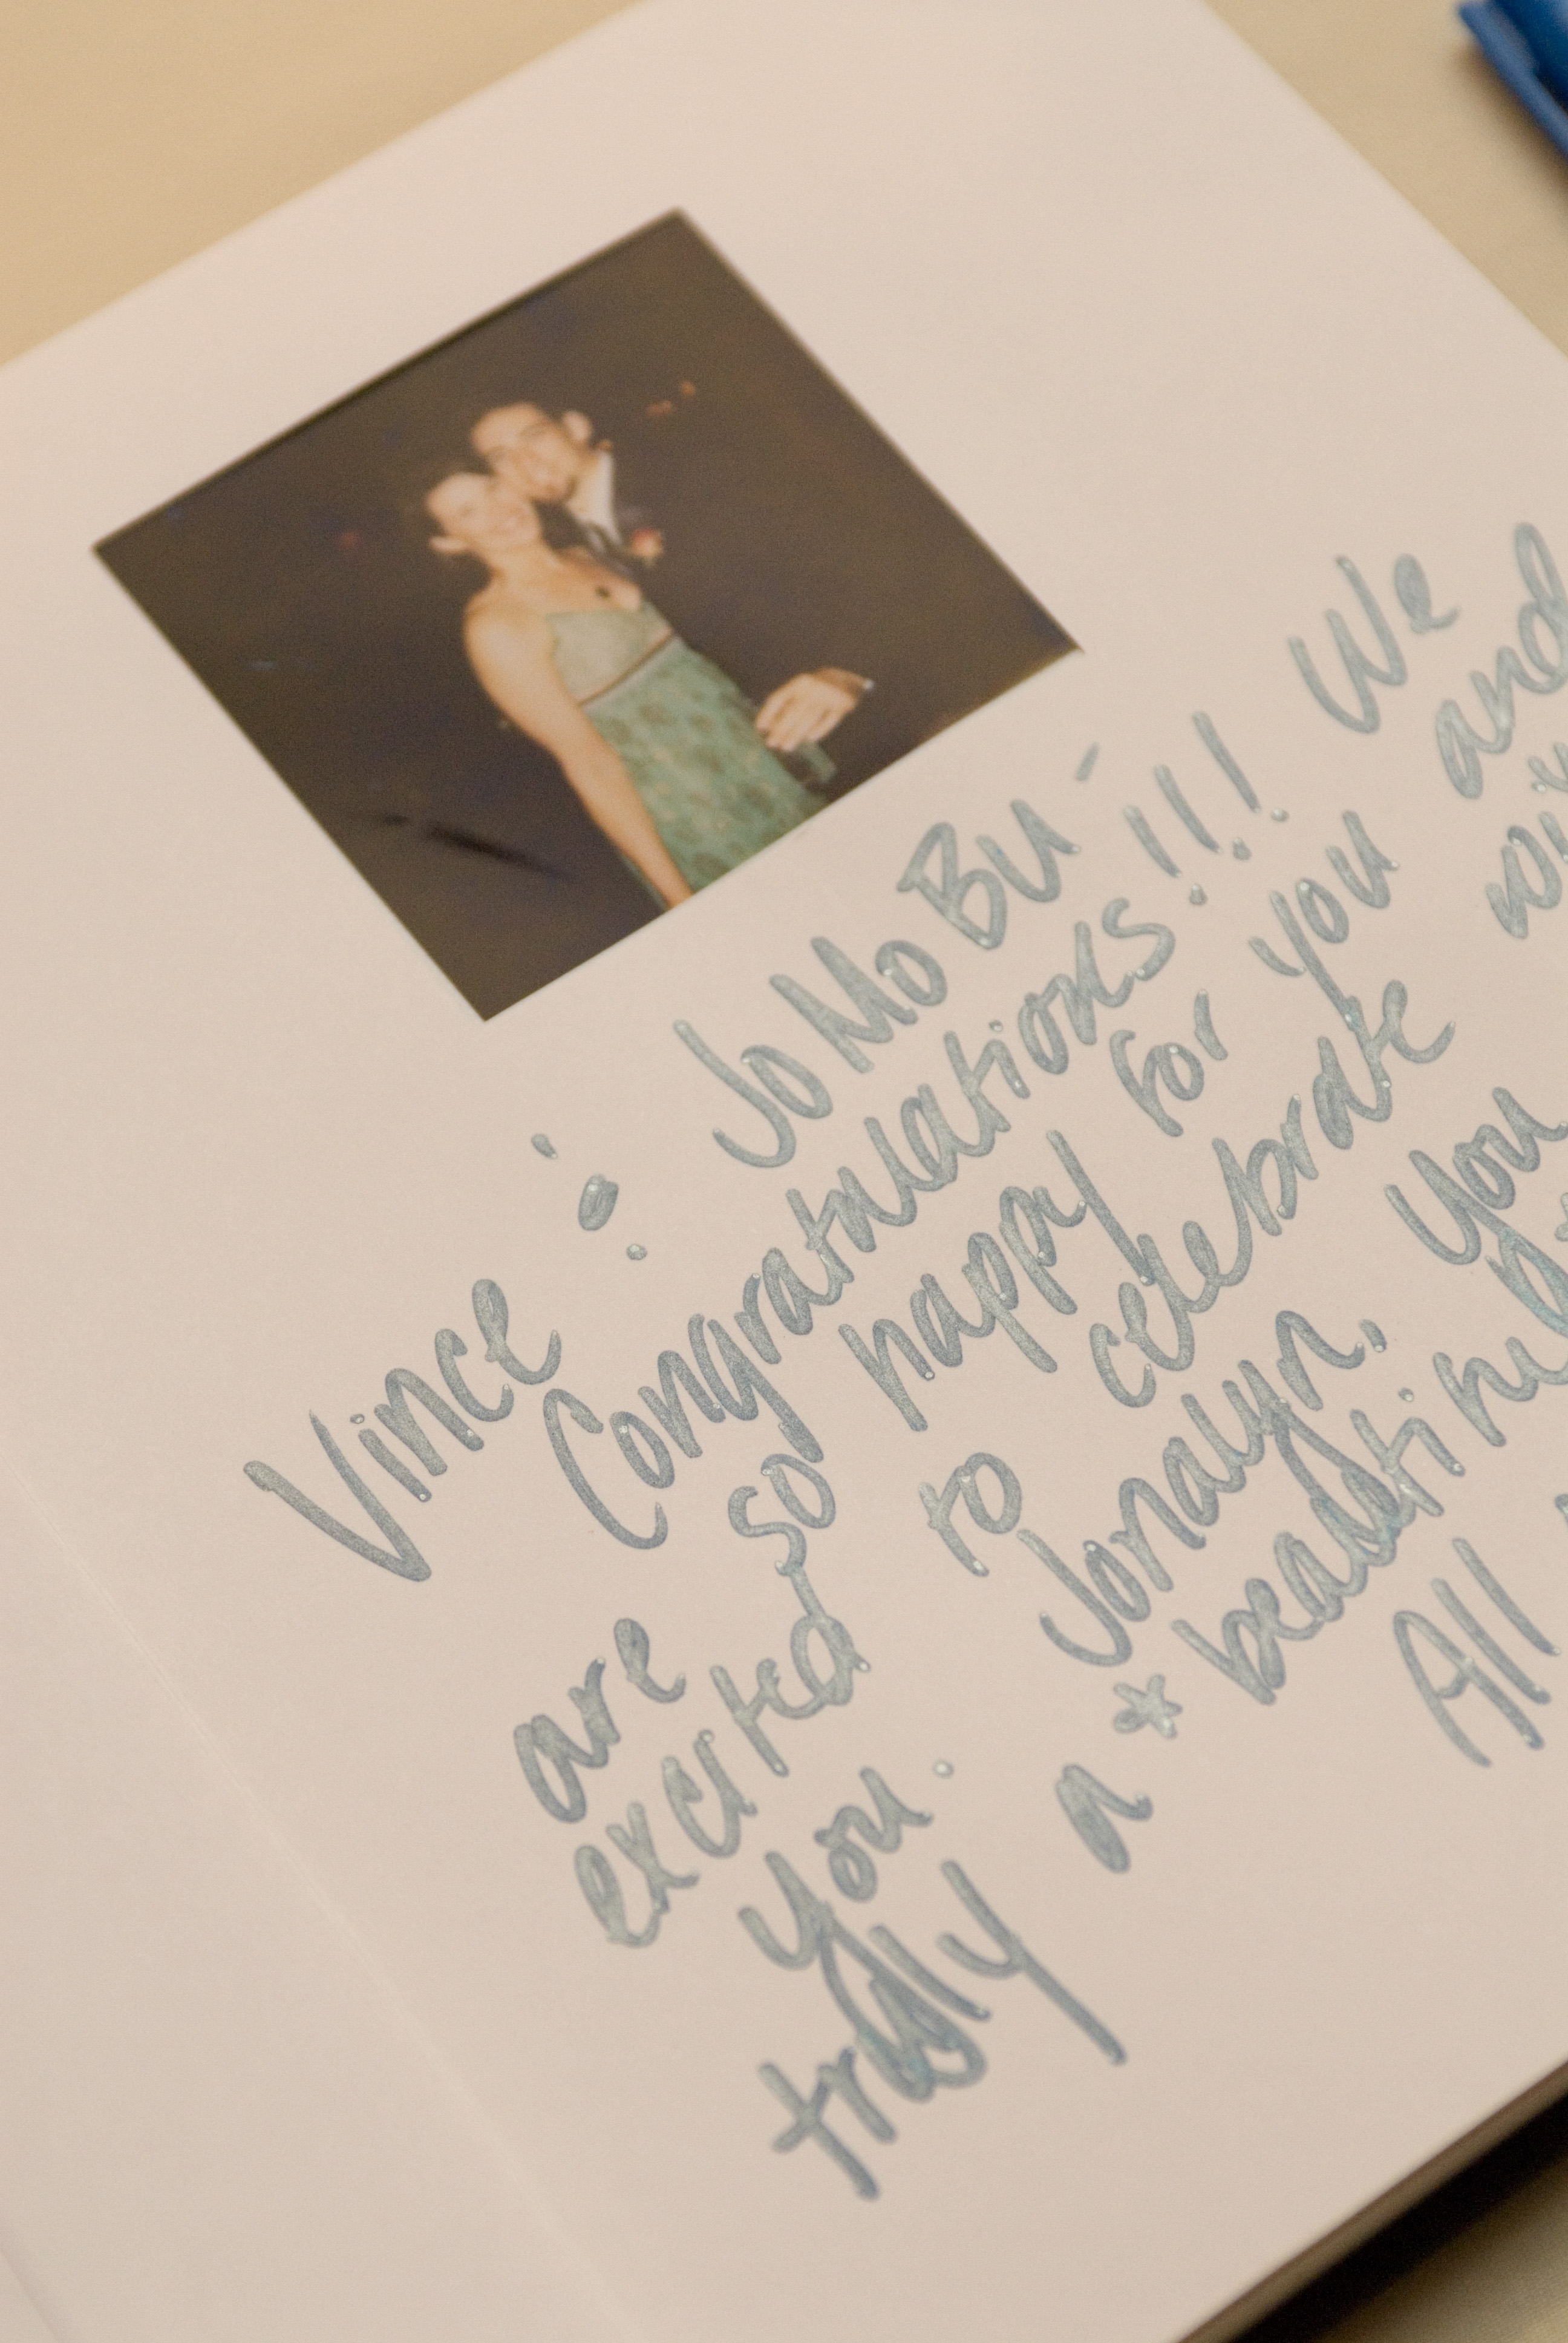 Vince & JoMoBu -
Congratulations!!! We
are so happy for you and
excited to celebrate
you. Jonalyn, you
truly a * beautiful
All